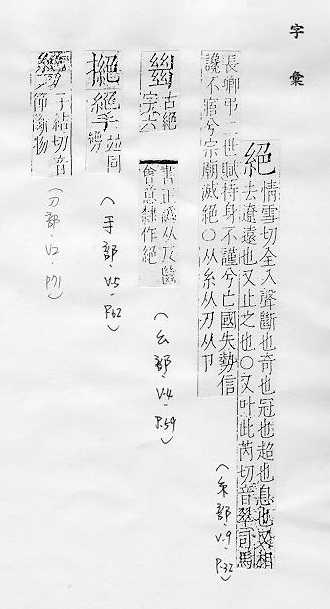 字彙
絕
情雪切全入聲斷也奇也冠也超也息也又相
去遼遠也又止之也○又叶此芮切音翠司馬
長卿弔二世賦持身不謹兮亡國失勢信
讒不寤兮宗廟滅絕○从糸从刀从卩
(糸部.V.9.P.32)
古絕
字六
書正譌从反
會意隸作絕
(幺部.V.4.P.59)
並同
(手部.V.5.P.62)
子結切音
節斷物
(刀部.V.2.P.71)